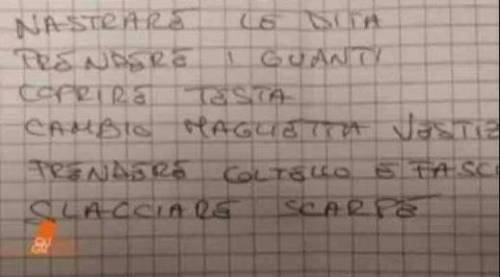 NASTRARE LE DITA
PRENDERE I GUANTI
COPRIRE TESTA
CAMBIO MAGLIETTA VESTIE
PRENDERE COLTELLO E TASC
SLACCIARE SCARPE